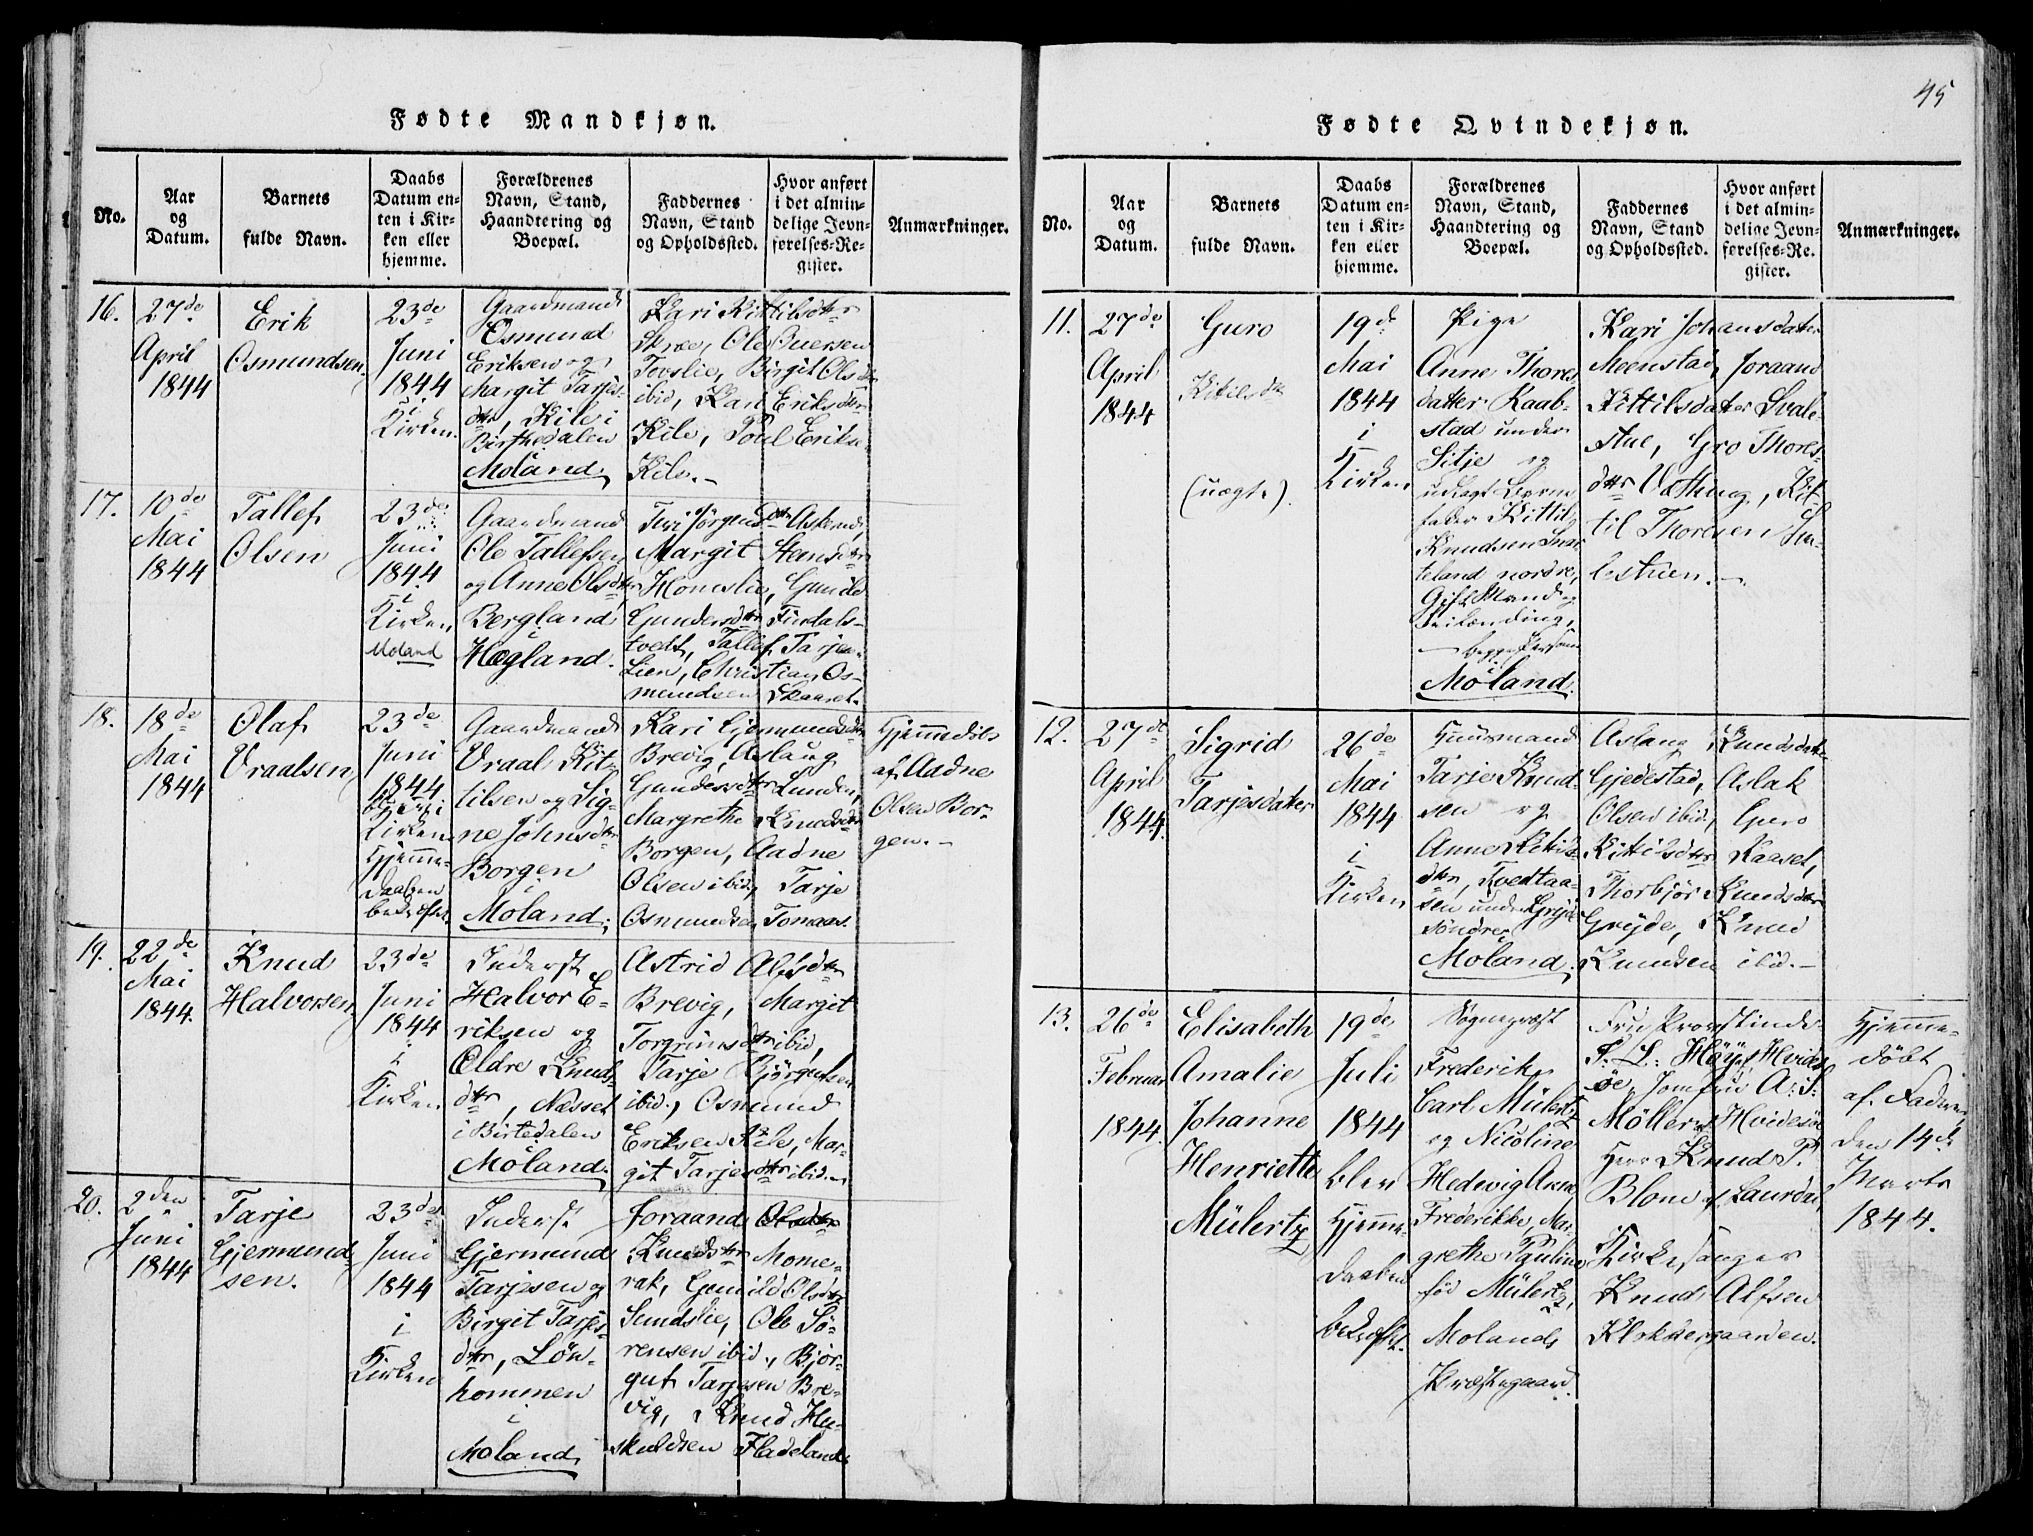 45
Fødte Mandkjøn.
No.
Aar
og
Datum.
Barnets
fulde Navn.
Daabs
Datum en-
ten i Kir-
ken eller
hjemme.
Forældrenes
Navn, Stand,
Haandtering og
Boepæl.
Faddernes
Navn, Stand
og Opholdssted.
Hvor anført
i det almin-
delige Jevn-
førelses-Re-
gister.
Anmærkninger.
16.
27de
April
1844
Erik
Osmundsen
23de
Juni
1844
i
Kirken.
Gaardmand
Osmund
Eriksen og
Margit Tarjes-
dtr, Kile i
Birthedalen
Moland
Kari Kittilsdtr
Skree, Ole
Tovslie, Birgit Olsdtr
ibid, Kari Eriksdtr
Kile, Poul Eriks-
Kile.-
17.
10de
Mai
1844
Tallef
Olsen
23de
Juni
1844
i
Kirken
Moland
Gaardmand
Ole Tallefsen
og Anne Olsdtr
Bergland
i
Hægland.
Turi Jørgensdtr
Margit Hansdtr
Homslie, Gunild
Gundersdtr Findals-
tvedt, Tallef Tarje-
Lien, Christian Os-
mundsen Skaaret.
18.
18de
Mai
1844
Olaf
Vraalsen
23de
Juni
1844
blev i
Kirken
Hjemme-
daaben
bekræftet.
Gaardmand
Vraal Kit-
tilsen og Sig-
ne Johnsdtr
Borgen
i
Moland
Kari Gjermundsdtr
Brevig, Aslaug
Gundersdtr Lunden,
Margrethe Knudsdtr
Borgen, Aadne
Olsen ibid, Tarje
Osmundsen Tomaas.
Hjemmedøbt
af Aadne
Olsen Bor-
gen.-
19.
22de
Mai
1844.
Knud
Halvorsen
23de
Juni
1844
i
Kirken
Inderst
Halvor E-
riksen og
Eldre Knuds-
dtr, Næsset
i Birtedalen
Moland.
Astrid Alfsdtr
Brevig, Margit
Torgrimsdtr ibid,
Tarje Bjørgufsen
ibid., Osmund
Eriksen Kile, Mar-
git Tarjesdtr ibid.
20.
2den
Juni
1844
Tarje
Gjermund-
sen.
23de
Juni
1844
i
Kirken
Inderst
Gjermund
Tarjesen og
Birgit Tarjes-
dtr, Løn-
hommen
i
Moland
Joraand Olsdtr
Knudsdtr Mome-
rak, Gunild Olsdtr
Sundslie, Ole Sø-
rensen ibid., Bjør-
guf Tarjesen Bre-
vig, Knud Hu-
skuldsen Fladeland.
Fødte Qvindekjøn.
No.
Aar
og
Datum.
Barnets
fulde Navn.
Daabs
Datum en-
ten i Kir-
ken eller
hjemme.
Forældrenes
Navn, Stand,
Haandtering og
Boepæl.
Faddernes
Navn, Stand
og Opholdssted.
Hvor anført
i det almin-
delige Jevn-
førelses-Re-
gister.
Anmærkninger.
11.
27de
April
1844
Guro
Kitilsdtr
(uægte).
19de
Mai
1844
i
Kirken
Pige
Anne Thores-
datter Raab-
stad under
Sitje og
udlagt Barne-
fader Kittil
Knudsen Snar-
teland nordre,
Gift Mand og
begge Personer
i
Moland.
Kari Johansdatter
Meenstad, Joraand
Kittilsdatter Svale-
stue, Gro Thores-
dtr Vething, Kit-
til Thoresen Sva-
lestuen.-
12.
27de
April
1844.
Sigrid
Tarjesdatter
26de
Mai
1844
i
Kirken
Huusmand
Tarje Knud-
sen og
Anne Kittils-
dtr, Tvedtaa-
sen under Grejde
Søndre
Moland.
Aslaug Knudsdtr
Gjedestad, Aslak
Olsen ibid, Guro
Kittilsdtr Kaaset,
Thorbjør Knudsdtr
Grejde, Knud
Knudsen ibid.-
13.
26de
Februar
1844.
Elisabeth
Amalie
Johanne
Henriette
Mülertz
19de
Juli
1844
blev
Hjemme-
daaben
bekræftet.
Sognepræst
Frederik
Carl Mülertz
og Nicoline
Hedevig Anne
Frederikke Mar-
grethe Pauline
fød Mülertz,
Molands
Præstegaard.
Fru Provstinde
F: L: Höyer Hvides-
øe, Jomfru A: S:
Möller Hvidesøe
Herr Knud P.
Blom af Laurdal
Kirkesanger
Knud Alfsen
Klokkergaarden.
Hjemme-
døbt
af Faderen
den 14de
Marts
1844.